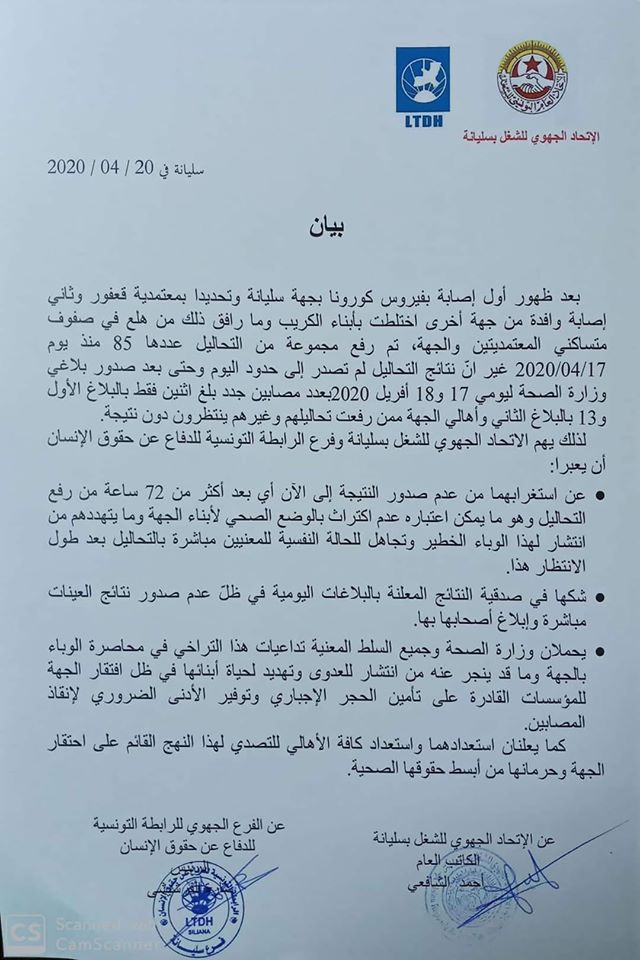 LTDH
الإتحاد الجهوي للشغل بسليانة
سليانة في 20 / 04 / 2020
بيان
بعد ظهور أول إصابة بفيروس كورونا بجهة سليانة وتحديدا بمعتمدية قعفور وثاني
إصابة وافدة من جهة أخرى اختلطت بأبناء الكريب وما رافق ذلك من هلع في صفوف
متساكني المعتمديتين والجهة، تم رفع مجموعة من التحاليل عددها 85 منذ يوم
2020/04/17 غير انّ نتائج التحاليل لم تصدر إلى حدود اليوم وحتى بعد صدور بلاغي
وزارة الصحة ليومي 17 و18 أفريل 2020بعدد مصابين جدد بلغ اثنين فقط بالبلاغ الأول
و13 بالبلاغ الثاني وأهالي الجهة ممن رفعت تحاليلهم وغيرهم ينتظرون دون نتيجة.
لذلك يهم الاتحاد الجهوي للشغل بسليانة وفرع الرابطة التونسية للدفاع عن حقوق الإنسان
أن يعبرا:
● عن استغرابهما من عدم صدور النتيجة إلى الآن أي بعد أكثر من 72 ساعة من رفع
التحاليل وهو ما يمكن اعتباره عدم اكتراث بالوضع الصحي لأبناء الجهة وما يتهددهم من
انتشار لهذا الوباء الخطير وتجاهل للحالة النفسية للمعنيين مباشرة بالتحاليل بعد طول
الانتظار هذا.
● شكها في صدقية النتائج المعلنة بالبلاغات اليومية في ظلّ عدم صدور نتائج العينات
مباشرة وإبلاغ أصحابها بها.
● يحملان وزارة الصحة وجميع السلط المعنية تداعيات هذا التراخي في محاصرة الوباء
بالجهة وما قد ينجر عنه من انتشار للعدوى وتهديد لحياة أبنائها في ظل افتقار الجهة
للمؤسسات القادرة على تأمين الحجر الإجباري وتوفير الأدنى الضروري لإنقاذ
المصابين.
كما يعلنان استعدادهما واستعداد كافة الأهالي للتصدي لهذا النهج القائم على احتقار
الجهة وحرمانها من أبسط حقوقها الصحية.
عن الإتحاد الجهوي للشغل بسليانة
الكاتب العام
احمد الشافعي
عن الفرع الجهوي للرابطة التونسية
للدفاع عن حقوق الإنسان
LTDH
SILIANA
فرع سليانة
CS
Scanned with
CamScanner